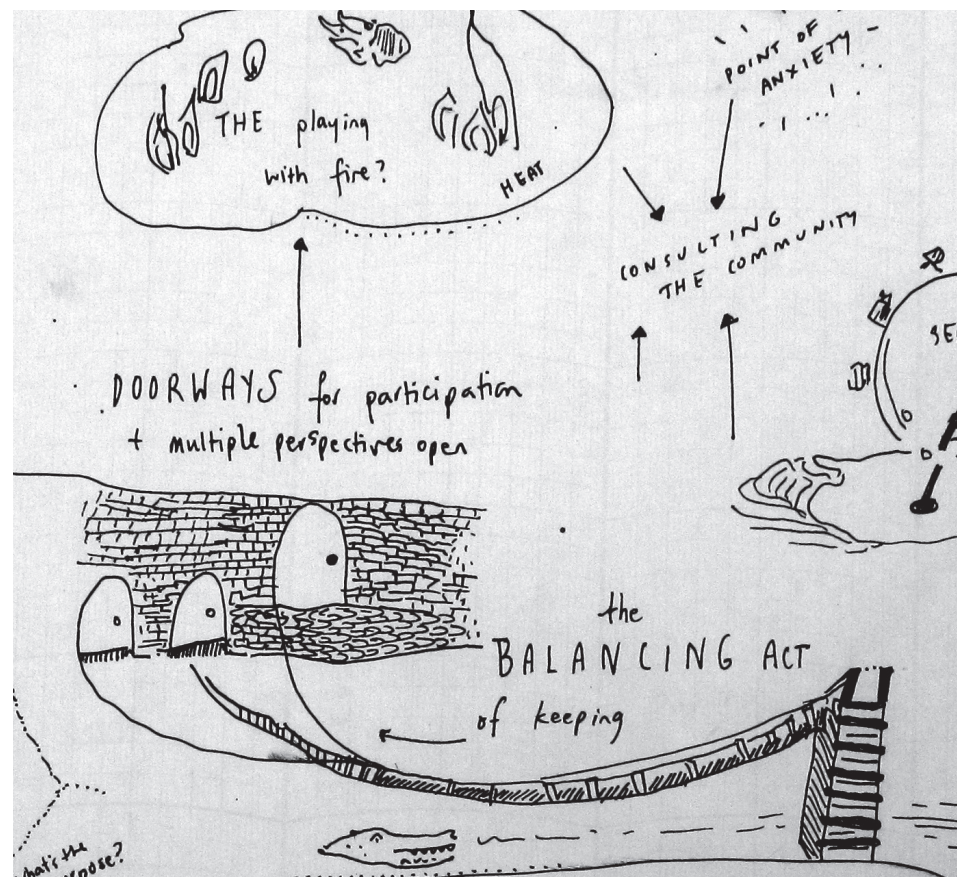 THE playing
with fire?
HEAT
POINT OF
ANXIETY
CONSULTING
THE COMMUNITY
DOORWAYS for participation
+ multiple perspectives open
the
BALANCING ACT
of keeping
what's the